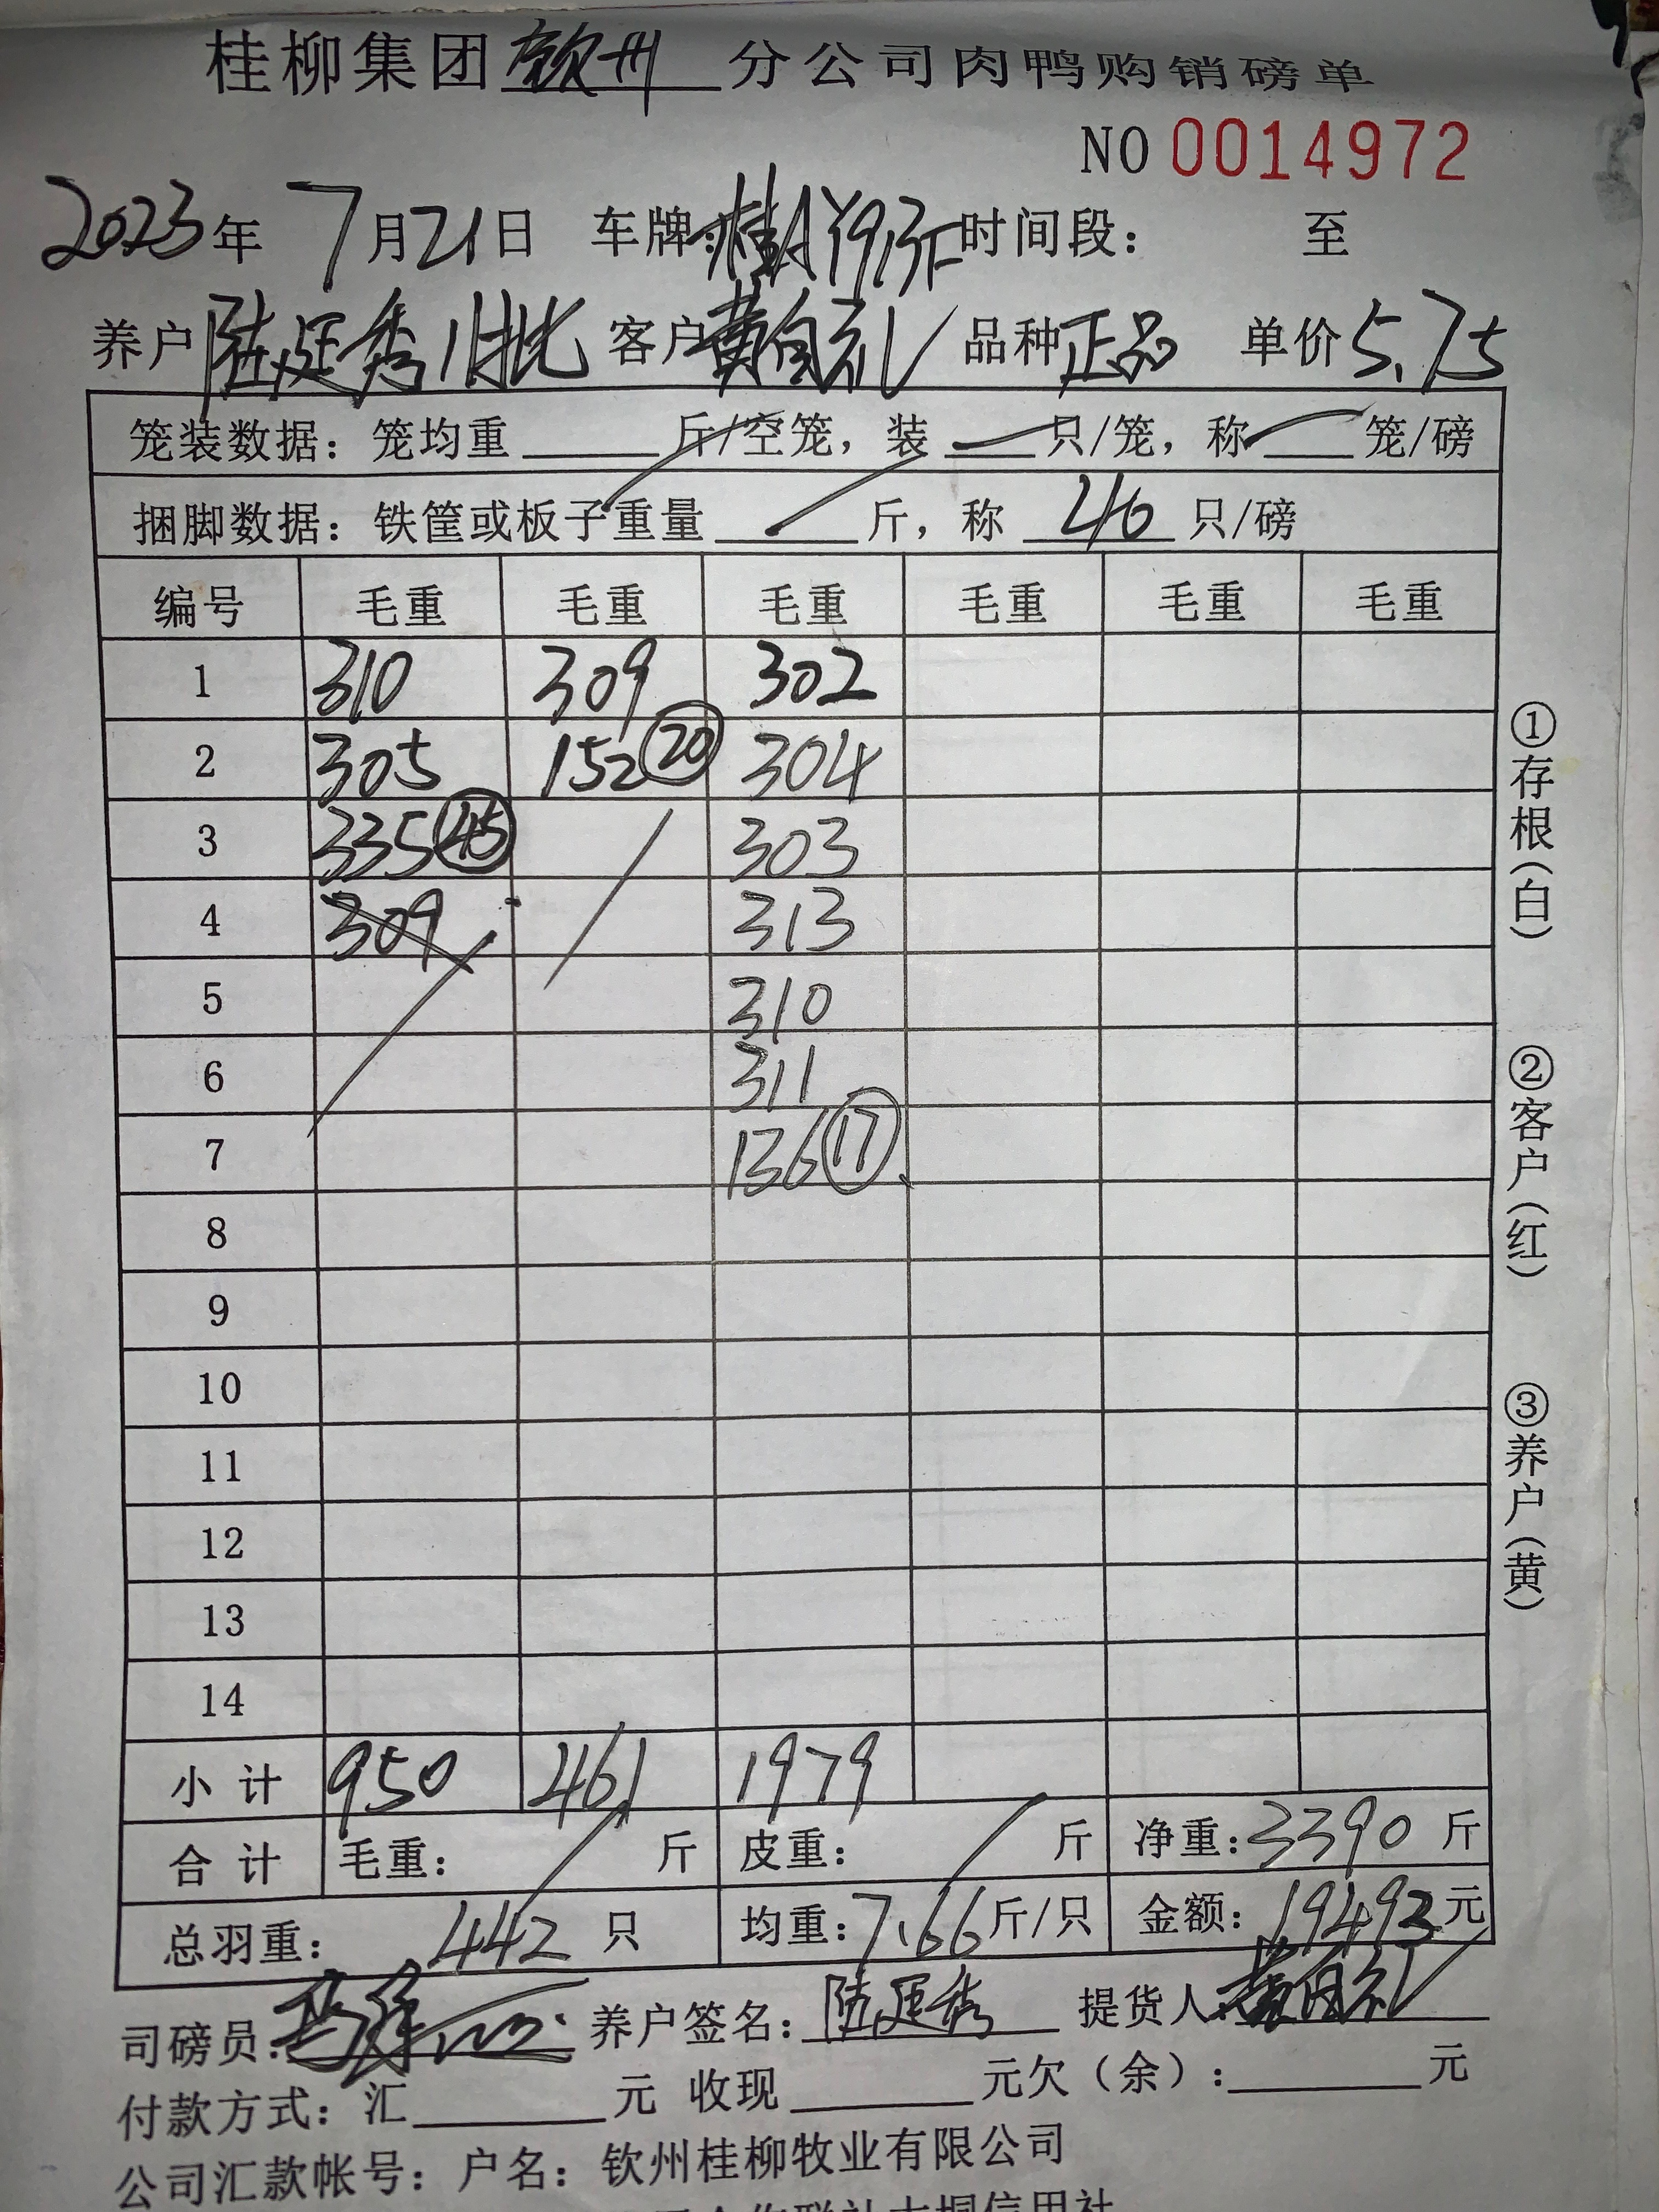 桂柳集团钦州分公司肉鸭购销磅单
NO 0014972
2023年7月21日 车牌:桂AY9 时间段: 至
养户陆廷秀 批 客户黄自礼 品种正品 单价5.75
笼装数据:笼均重 斤/空笼,装 只/笼,称 笼/磅
捆脚数据:铁筐或板子重量 斤,称 46 只/磅
编号 毛重 毛重 毛重 毛重 毛重 毛重
1 310 309 302
2 305 152 20 304
3 335 45 303
4 309 313
5 310
6 311
7 136 17
8
9
10
11
12
13
14
小计 950 461 1979
合计 毛重: 斤 皮重: 斤 净重:3390斤
总羽重: 442只 均重:7.66斤/只 金额:19492元
司磅员: 养户签名:陆廷秀 提货人:黄自礼
付款方式:汇 元 收现 元欠(余): 元
公司汇款帐号:户名:钦州桂柳牧业有限公司
①存根(白)
②客户(红)
③养户(黄)